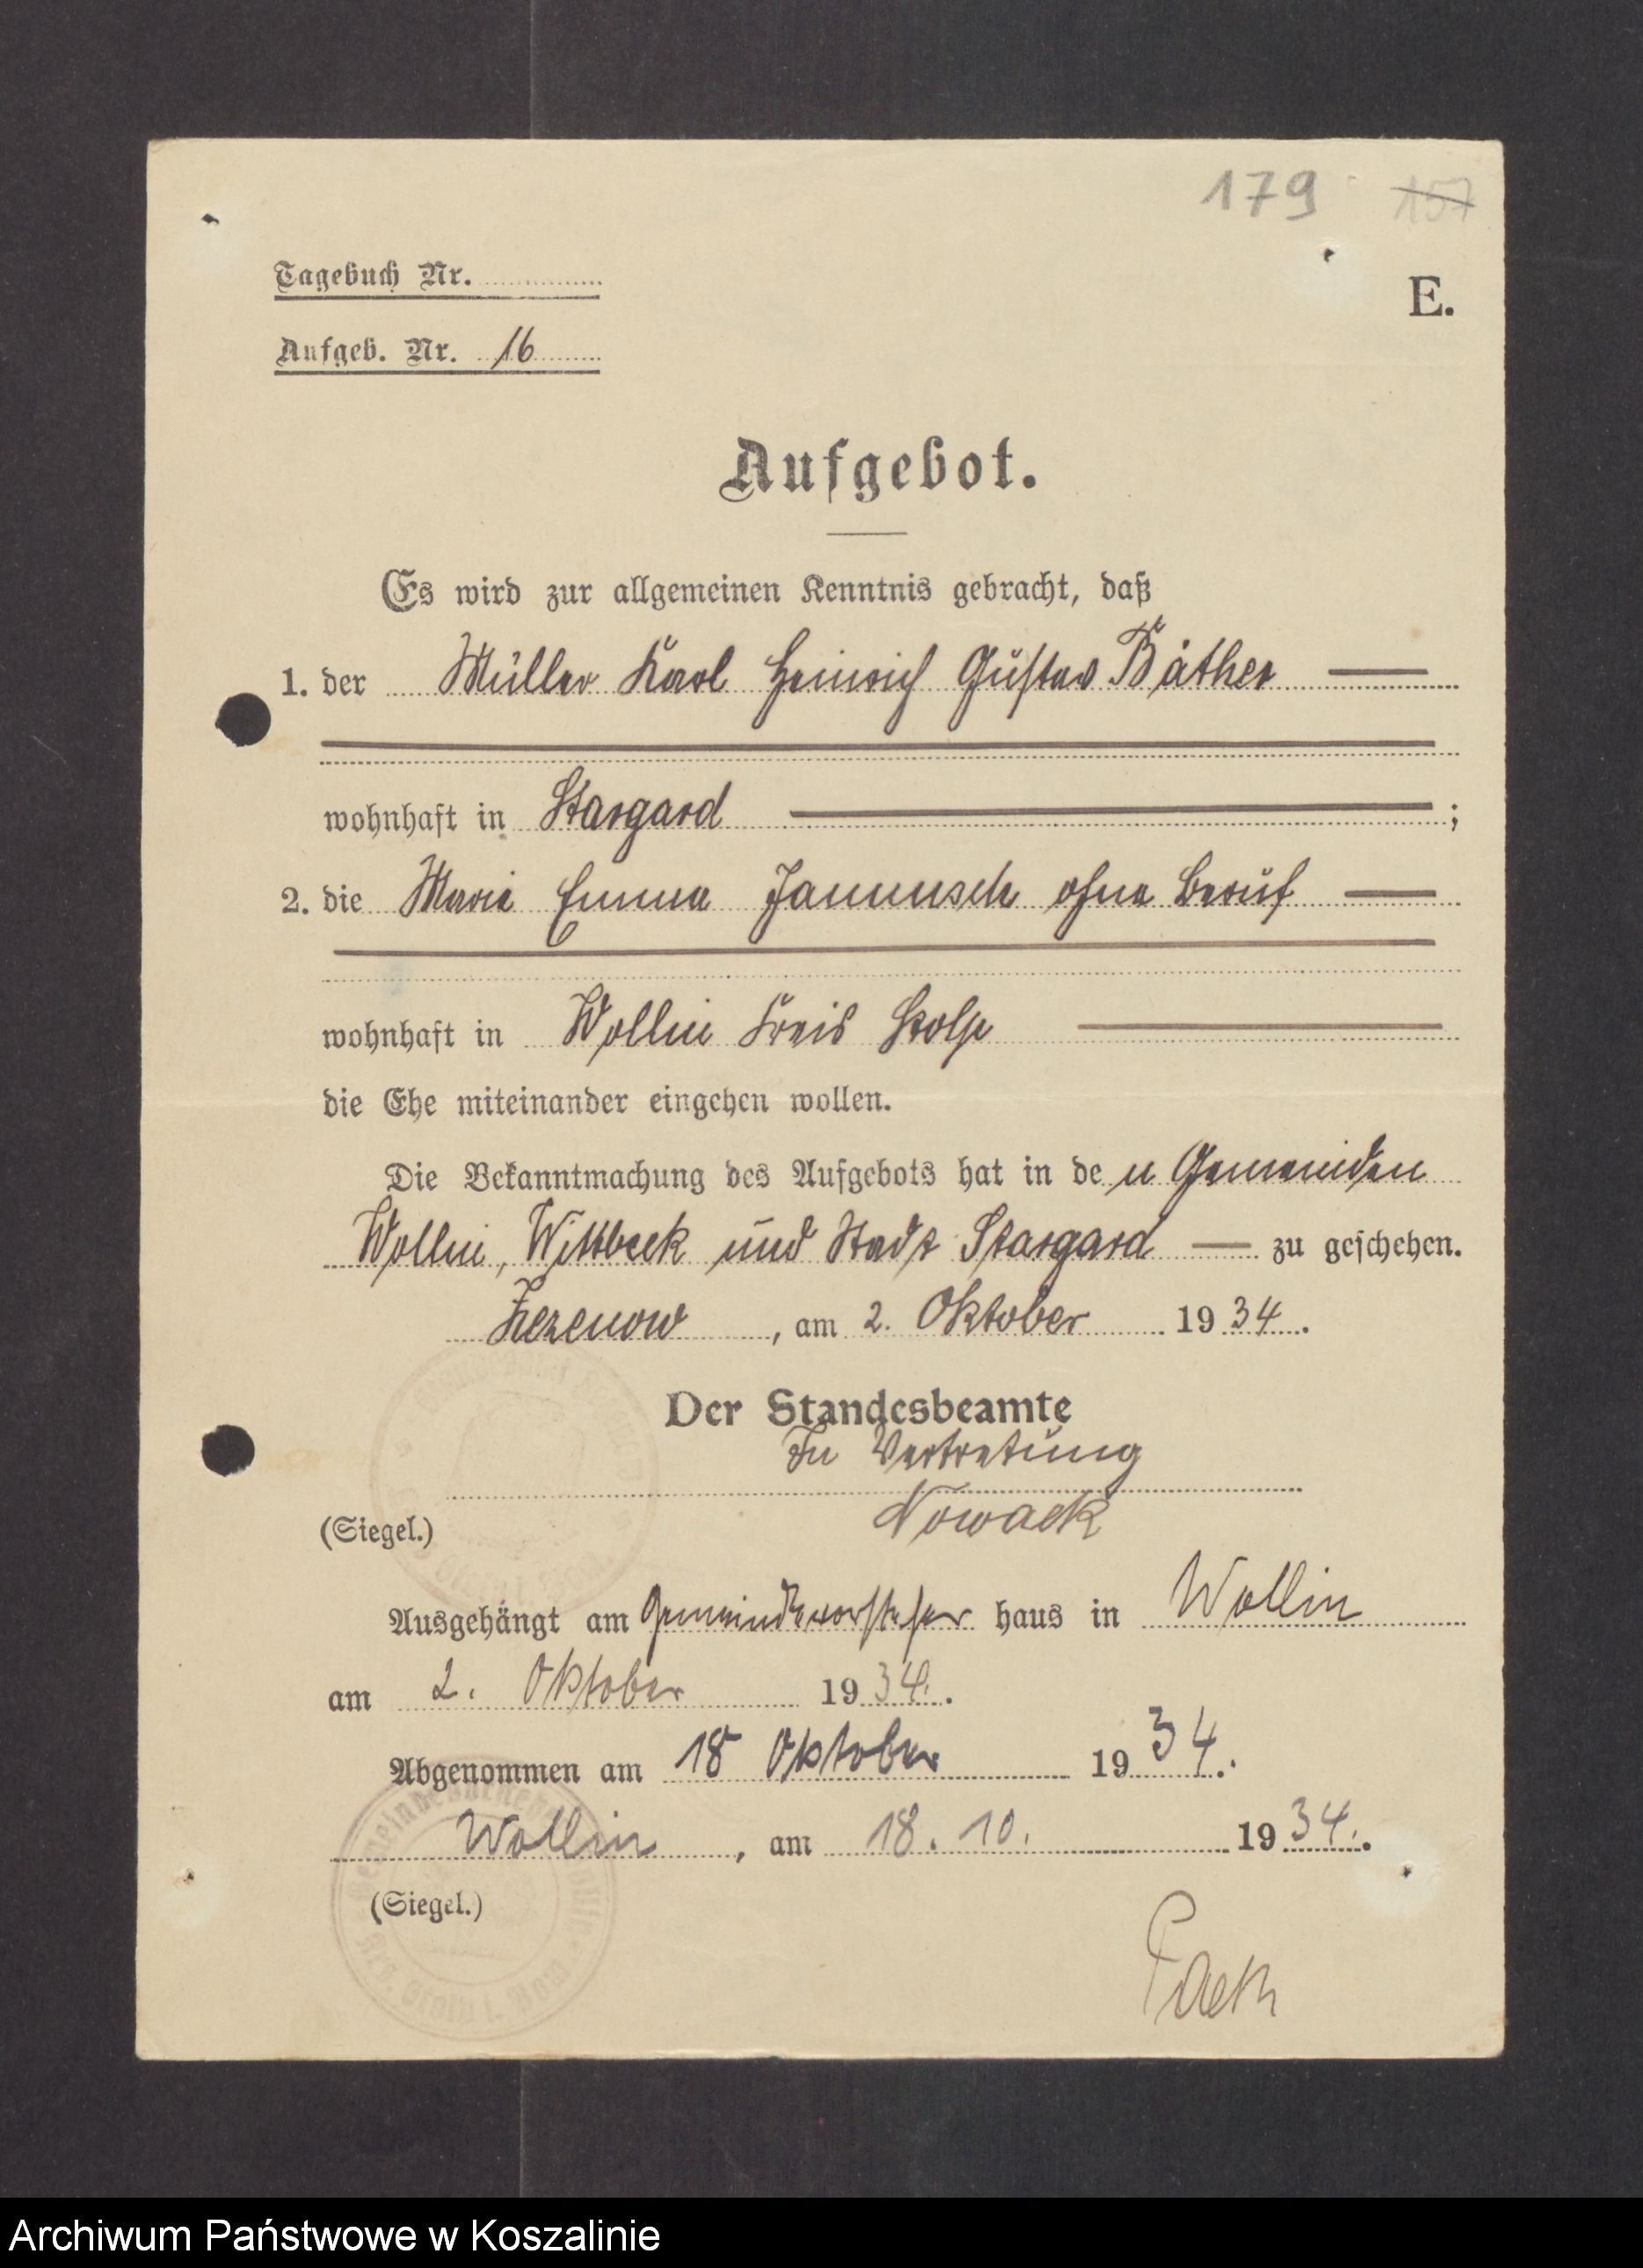 179 157
Tagebuch Nr.
E.
Aufgeb. Nr. 16
Aufgebot.
Es wird zur allgemeinen Kenntnis gebracht, daß
1. der Müller Karl Heinrich Gustav Bäther
wohnhaft in Stargard ;
2. die Marie Emma Jannusch ohne Beruf
wohnhaft in Wollin Kreis Stolp
die Ehe miteinander eingehen wollen.
Die Bekanntmachung des Aufgebots hat in de n Gemeinden
Wollin, Wittbeck und Stadt Stargard zu geschehen.
Zezenow, am 2. Oktober 1934.
Der Standesbeamte
In Vertretung
Nowack
(Siegel.)
Ausgehängt am Gemeindevorsteher haus in Wollin
am 2. Oktober 1934.
Abgenommen am 18 Oktober 1934.
Wollin, am 18. 10. 1934.
(Siegel.)
Archiwum Państwowe w Koszalinie